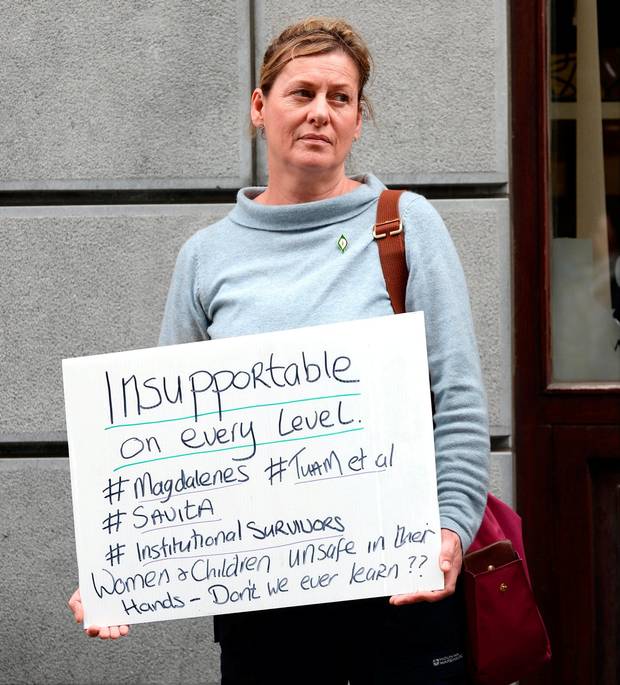 Insupportable
on every Level.
# Magdalenes # TUAM et al
# SAVITA
# Institutional SURVIVORS
Women & Children unsafe in their
Hands - Don't we ever learn ??